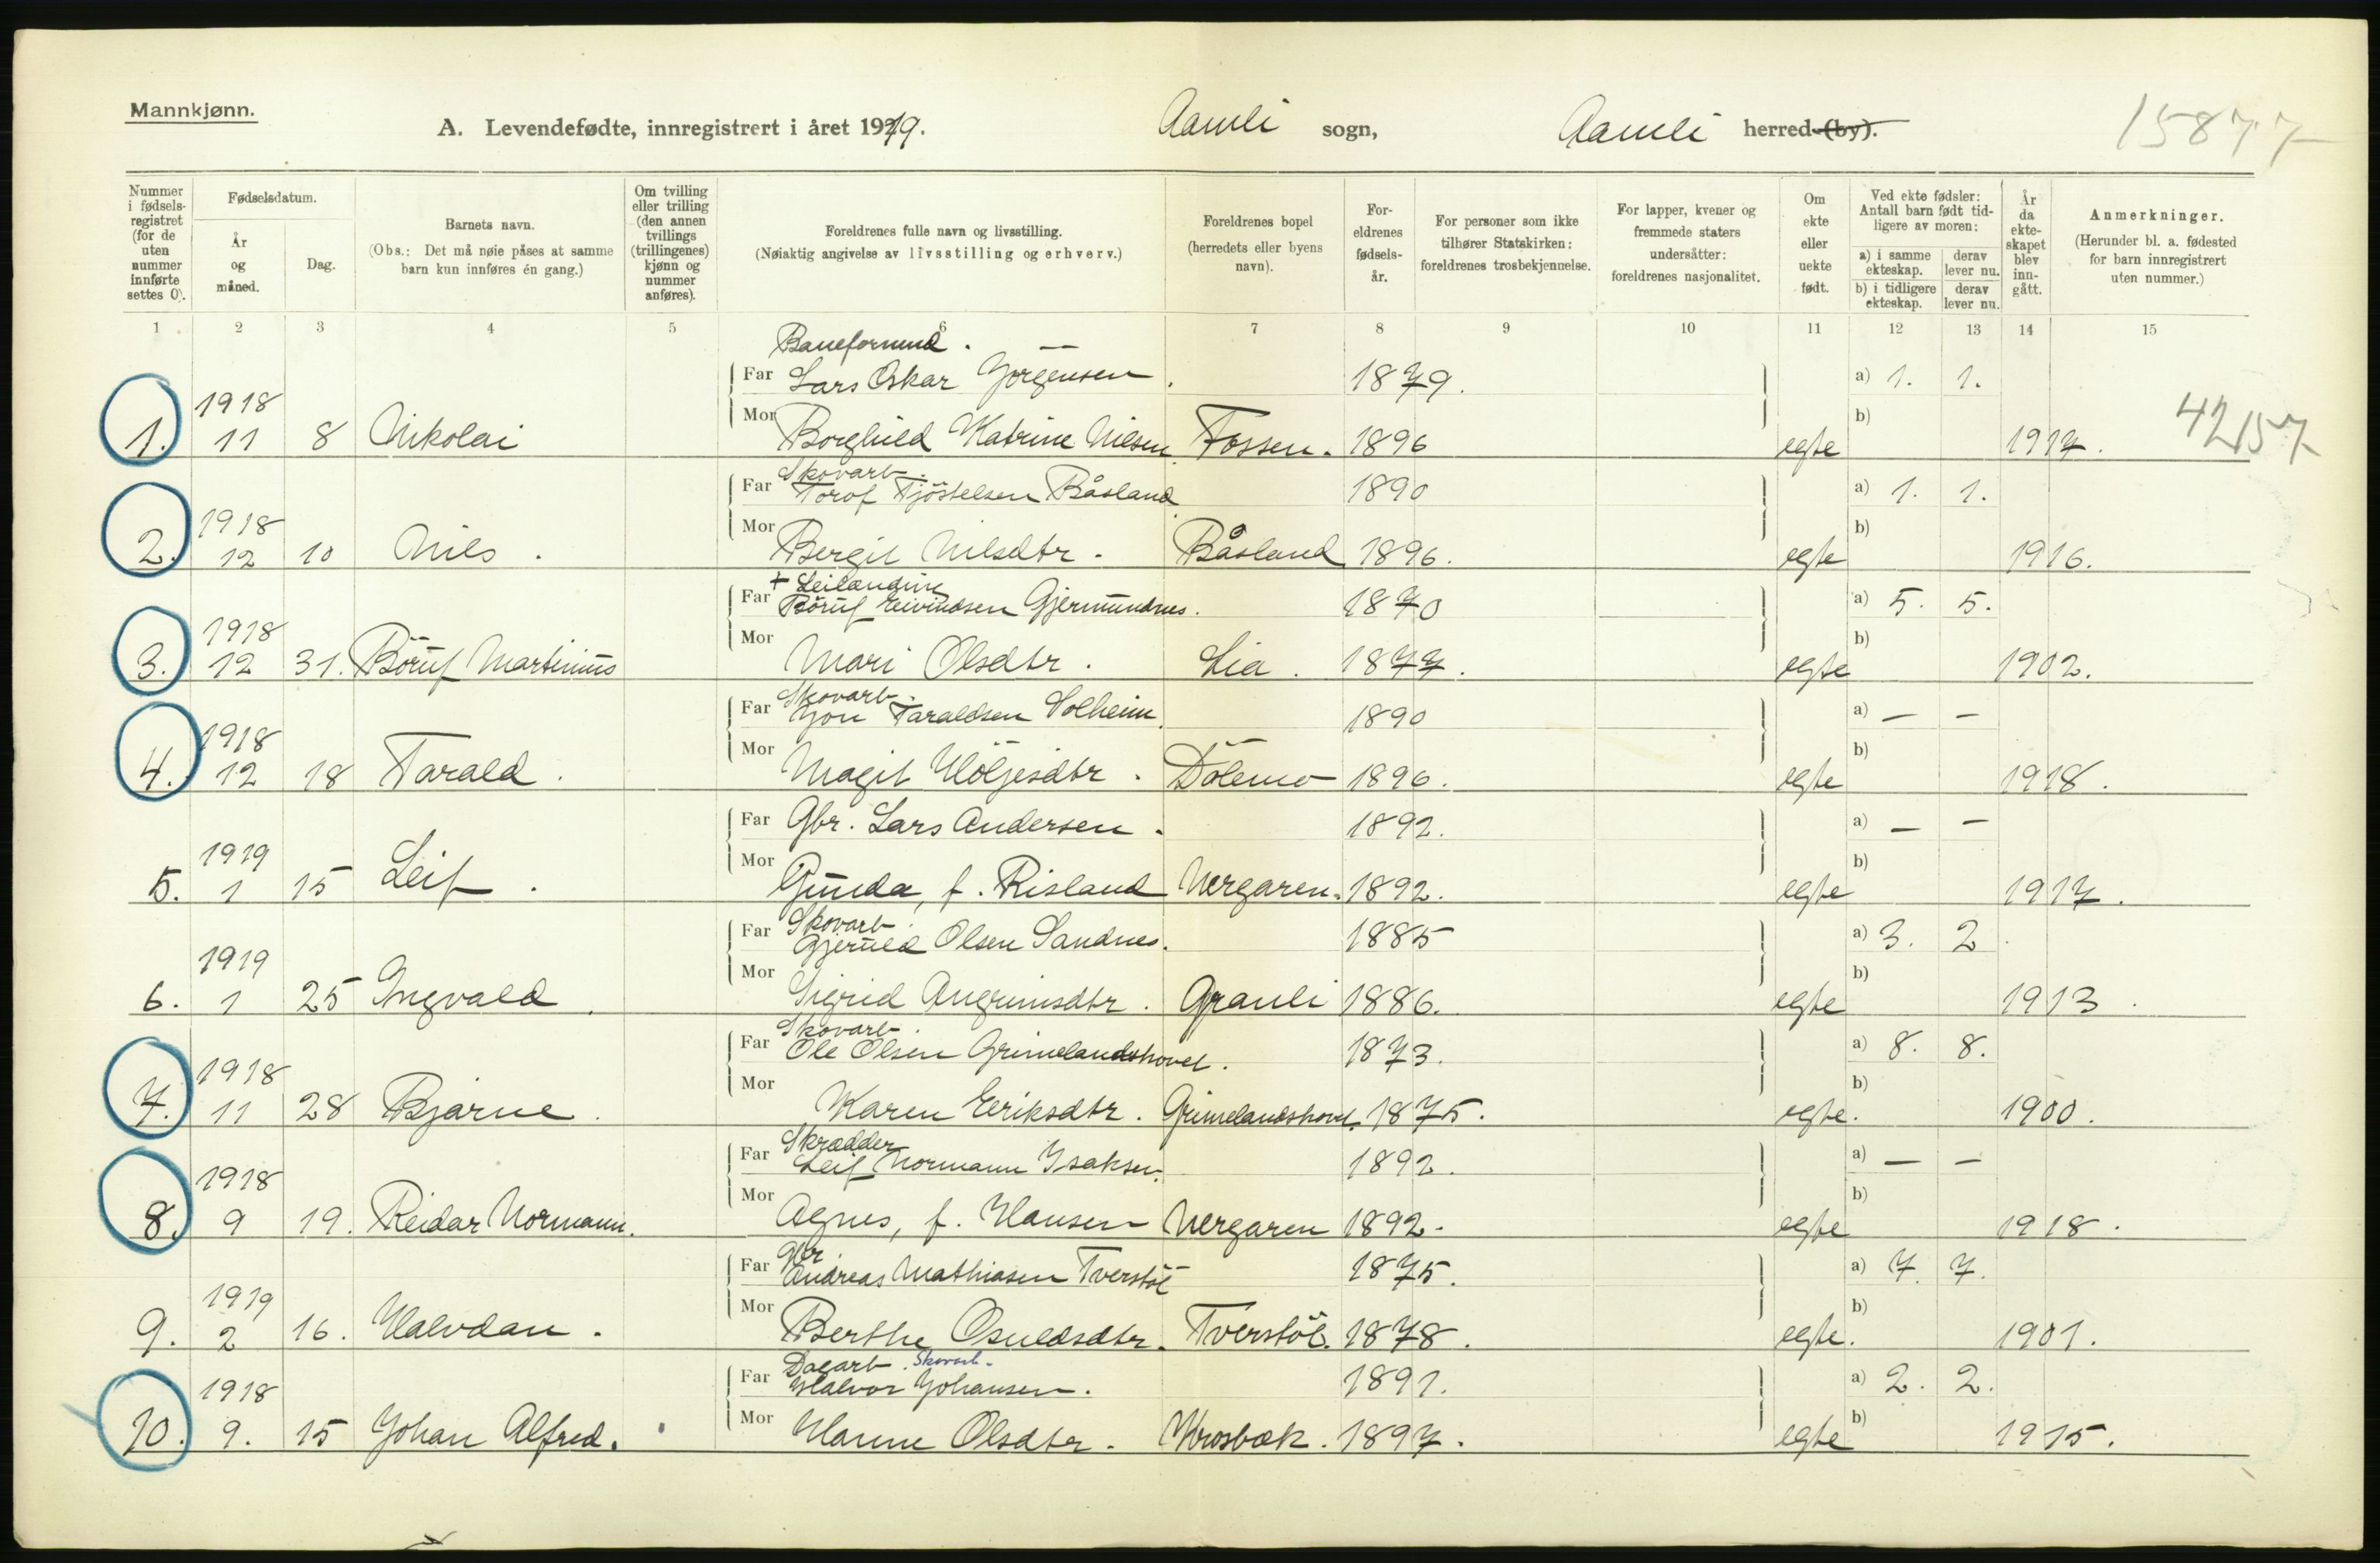 Mannkjønn.
A. Levendefødte, innregistrert i året 1919. Aamli sogn, Aamli herred (by).
15877
Nummer i fødsels-registret (for de uten nummer innførte settes 0).
Fødselsdatum.
År og måned.
Dag.
Barnets navn.
(Obs.: Det må nøie påses at samme barn kun innføres én gang.)
Om tvilling eller trilling (den annen tvillings (trillingenes) kjønn og nummer anføres).
Foreldrenes fulle navn og livsstilling.
(Nøiaktig angivelse av livsstilling og erhverv.)
Foreldrenes bopel (herredets eller byens navn).
For-eldrenes fødsels-år.
For personer som ikke tilhører Statskirken: foreldrenes trosbekjennelse.
For lapper, kvener og fremmede staters undersåtter: foreldrenes nasjonalitet.
Om ekte eller uekte født.
Ved ekte fødsler: Antall barn født tid-ligere av moren:
a) i samme ekteskap. derav lever nu.
b) i tidligere ekteskap. derav lever nu.
År da ekte-skapet blev inn-gått.
Anmerkninger.
(Herunder bl. a. fødested for barn innregistrert uten nummer.)
1 2 3 4 5 6 7 8 9 10 11 12 13 14 15
Baneformand.
Far Lars Oskar Jörgensen. 1879. a) 1. 1.
1. 1918 11 8 Nikolai Mor Borghild Katrine Nilsen Fossen. 1896 egte b) 1917. 42157
Skovarb.
Far Torof Tjöstelsen Båsland 1890 a) 1. 1.
2. 1918 12 10 Nils. Mor Bergit Nilsdtr. Båsland 1896. egte b) 1916.
+ Leilænding
Far Böruf Eivindsen Gjermundnes. 1870 a) 5. 5.
3. 1918 12 31. Böruf Martinius Mor Mari Olsdtr. Lia. 1877. egte b) 1902.
Skovarb.
Far Jon Taraldsen Solheim. 1890 a) — —
4. 1918 12 18 Tarald. Mor Magit Höljesdtr. Dölemo 1896. egte b) 1918.
Far Gbr. Lars Andersen. 1892. a) — —
5. 1919 1 15 Leif. Mor Gunda, f. Risland Nergaren. 1892. egte b) 1917.
Skovarb.
Far Gjeruld Olsen Sandnes. 1885 a) 3. 2
6. 1919 1 25 Ingvald. Mor Sigrid Angrimsdtr. Granli 1886. egte b) 1913.
Skovarb.
Far Ole Olsen Grimelandshovet. 1873. a) 8. 8.
7. 1918 11 28 Bjarne. Mor Karen Eeriksdtr. Grimelandshovet. 1875. egte. b) 1900.
Skrædder
Far Leif Normann Isaksen. 1892. a) — —
8. 1918 9 19. Reidar Normann. Mor Agnes, f. Hansen Nergaren 1892. egte b) 1918.
Gbr.
Far Andreas Mathiasen Tverstöl 1875. a) 7. 7.
9. 1919 2 16. Halvdan. Mor Berthe Osuldsdtr. Tverstöl. 1878. egte. b) 1901.
Dagarb. Skovarb.
Far Halvor Johansen. 1891. a) 2. 2.
10. 1918 9. 15 Johan Alfred. Mor Hanne Olsdtr. Krosbæk. 1897. egte b) 1915.